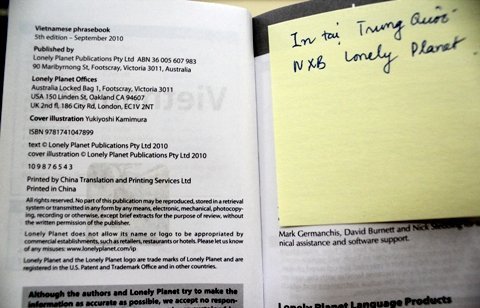 Vietnamese phrasebook
5th edition – September 2010
Published by
Lonely Planet Publications Pty Ltd ABN 36 005 607 983
90 Maribyrnong St, Footscray, Victoria 3011, Australia
Lonely Planet Offices
Australia Locked Bag 1, Footscray, Victoria 3011
USA 150 Linden St, Oakland CA 94607
UK 2nd fl, 186 City Rd, London, EC1V 2NT
Cover illustration Yukiyoshi Kamimura
ISBN 9781741047899
text © Lonely Planet Publications Pty Ltd 2010
cover illustration © Lonely Planet Publications Pty Ltd 2010
10 9 8 7 6 5 4 3
Printed by China Translation and Printing Services Ltd
Printed in China
All rights reserved. No part of this publication may be reproduced, stored in a retrieval
system or transmitted in any form by any means, electronic, mechanical, photocopy-
ing, recording or otherwise, except brief extracts for the purpose of review, without
the written permission of the publisher.
Lonely Planet does not allow its name or logo to be appropriated by
commercial establishments, such as retailers, restaurants or hotels. Please let us know
of any misuses: www.lonelyplanet.com/ip
Lonely Planet and the Lonely Planet logo are trade marks of Lonely Planet and are
registered in the U.S. Patent and Trademark Office and in other countries.
Although the authors and Lonely Planet try to make the
information as accurate as possible, we accept no respon-
In tại Trung Quốc
NXB Lonely Planet
Mark Germanchis, David Burnett and Nick
nical assistance and software support.
Lonely Planet Language Products